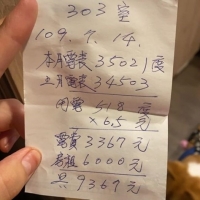 303室
109.7.14.
本月電表35021度
上月電表34503
用電 518度
×6.5元
電費3367元
房租6000元
共9367元